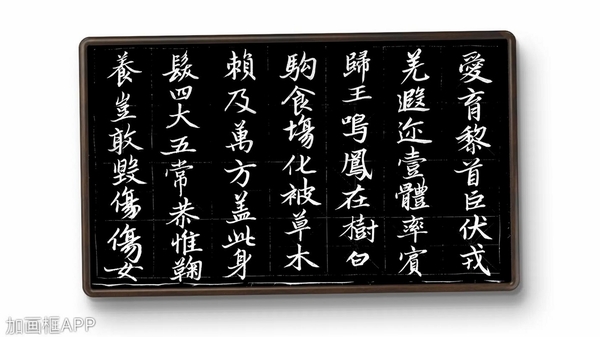 愛育黎首臣伏戎
羌遐迩壹體率賓
歸王鳴鳳在樹白
駒食塲化被草木
賴及萬方盖此身
髮四大五常恭惟鞠
養豈敢毀傷傷女
加画框APP